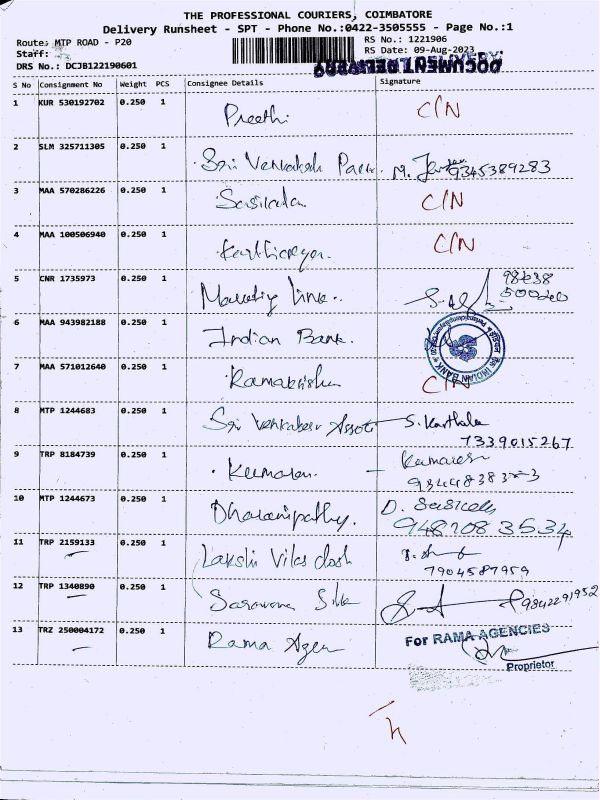 THE PROFESSIONAL COURIERS, COIMBATORE
Delivery Runsheet - SPT - Phone No.:0422-3505555 - Page No.:1
Route: MTP ROAD - P20
RS No.: 1221906
Staff:
RS Date: 09-Aug-2023
DRS No.: DCJB122190601
DOCUMENT DELIVERY
S No Consignment No Weight PCS Consignee Details Signature
1 KUR 530192702 0.250 1 Preethi C/N
2 SLM 325711305 0.250 1 Sri Venkatesh Pack. 9345389283
3 MAA 570286226 0.250 1 Sasikala C/N
4 MAA 100506940 0.250 1 Karthikeyan. C/N
5 CNR 1735973 0.250 1 Marketing Link..
6 MAA 943982188 0.250 1 Indian Bank.
INDIAN BANK
7 MAA 571012640 0.250 1 Ramakrishn C/N
8 MTP 1244683 0.250 1 Sri Venkatesr Assoti S. Karthala
7339015267
9 TRP 8184739 0.250 1 Kumaran. Kumaresn
10 MTP 1244673 0.250 1 Dharanipathy. D.
948708 3534
11 TRP 2159133 0.250 1 Lakshi Vilas dosh
7904587959
12 TRP 1340890 0.250 1 Saravana Silk 9842291952
13 TRZ 250004172 0.250 1 Rama Agen
For RAMA AGENCIES
Proprietor